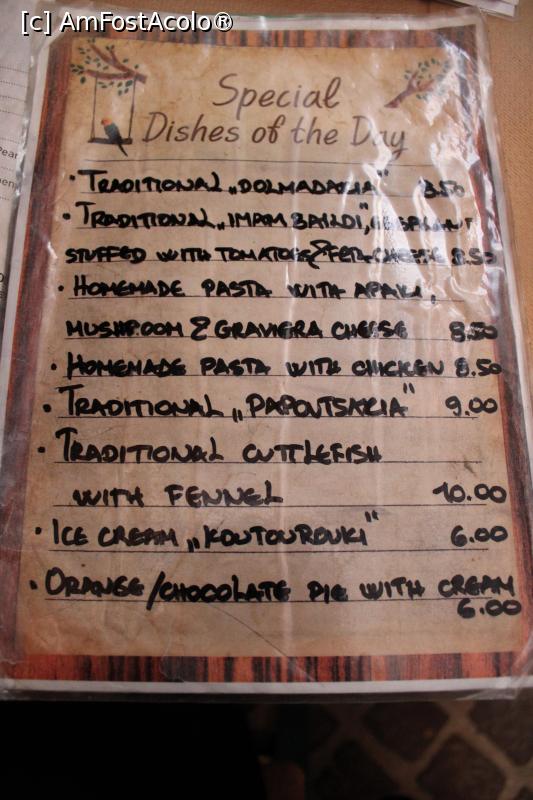 [c] AmFostAcolo®
Special
Dishes of the Day
• TRADITIONAL „DOLMADAKIA" 8.50
• TRADITIONAL „IMAM BAILDI", EGGPLANT
STUFFED WITH TOMATOES & FETA CHEESE 8.50
• HOMEMADE PASTA WITH APAKI,
MUSHROOM & GRAVIERA CHEESE 8.50
• HOMEMADE PASTA WITH CHICKEN 8.50
• TRADITIONAL „PAPOUTSAKIA" 9.00
• TRADITIONAL CUTTLEFISH
WITH FENNEL 10.00
• ICE CREAM „KOUTOUROUKI" 6.00
• ORANGE/CHOCOLATE PIE WITH CREAM
6.00
Pear